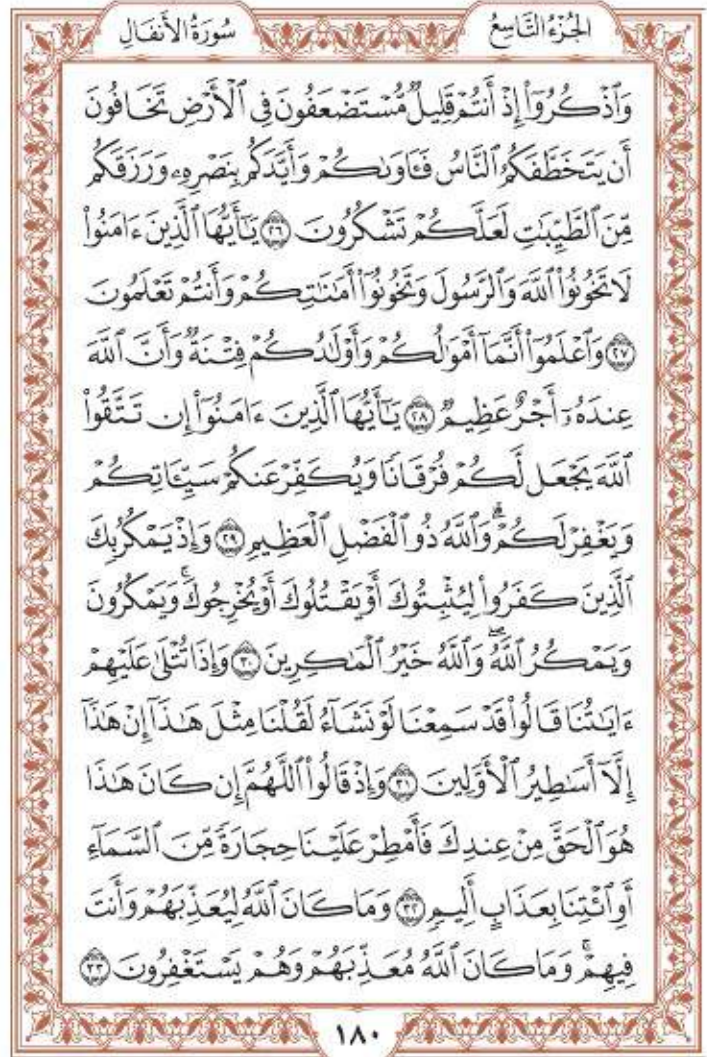 الجُزْءُ التَّاسِعُ
سُورَةُ الأَنفَالِ
وَٱذْكُرُوٓاْ إِذْ أَنتُمْ قَلِيلٌ مُّسْتَضْعَفُونَ فِى ٱلْأَرْضِ تَخَافُونَ
أَن يَتَخَطَّفَكُمُ ٱلنَّاسُ فَـَٔاوَىٰكُمْ وَأَيَّدَكُم بِنَصْرِهِۦ وَرَزَقَكُم
مِّنَ ٱلطَّيِّبَٰتِ لَعَلَّكُمْ تَشْكُرُونَ ٢٦ يَٰٓأَيُّهَا ٱلَّذِينَ ءَامَنُواْ
لَا تَخُونُواْ ٱللَّهَ وَٱلرَّسُولَ وَتَخُونُوٓاْ أَمَٰنَٰتِكُمْ وَأَنتُمْ تَعْلَمُونَ
٢٧ وَٱعْلَمُوٓاْ أَنَّمَآ أَمْوَٰلُكُمْ وَأَوْلَٰدُكُمْ فِتْنَةٌ وَأَنَّ ٱللَّهَ
عِندَهُۥٓ أَجْرٌ عَظِيمٌ ٢٨ يَٰٓأَيُّهَا ٱلَّذِينَ ءَامَنُوٓاْ إِن تَتَّقُواْ
ٱللَّهَ يَجْعَل لَّكُمْ فُرْقَانًا وَيُكَفِّرْ عَنكُمْ سَيِّـَٔاتِكُمْ
وَيَغْفِرْ لَكُمْۗ وَٱللَّهُ ذُو ٱلْفَضْلِ ٱلْعَظِيمِ ٢٩ وَإِذْ يَمْكُرُ بِكَ
ٱلَّذِينَ كَفَرُواْ لِيُثْبِتُوكَ أَوْ يَقْتُلُوكَ أَوْ يُخْرِجُوكَۚ وَيَمْكُرُونَ
وَيَمْكُرُ ٱللَّهُۖ وَٱللَّهُ خَيْرُ ٱلْمَٰكِرِينَ ٣٠ وَإِذَا تُتْلَىٰ عَلَيْهِمْ
ءَايَٰتُنَا قَالُواْ قَدْ سَمِعْنَا لَوْ نَشَآءُ لَقُلْنَا مِثْلَ هَٰذَآ إِنْ هَٰذَآ
إِلَّآ أَسَٰطِيرُ ٱلْأَوَّلِينَ ٣١ وَإِذْ قَالُواْ ٱللَّهُمَّ إِن كَانَ هَٰذَا
هُوَ ٱلْحَقَّ مِنْ عِندِكَ فَأَمْطِرْ عَلَيْنَا حِجَارَةً مِّنَ ٱلسَّمَآءِ
أَوِ ٱئْتِنَا بِعَذَابٍ أَلِيمٍ ٣٢ وَمَا كَانَ ٱللَّهُ لِيُعَذِّبَهُمْ وَأَنتَ
فِيهِمْۚ وَمَا كَانَ ٱللَّهُ مُعَذِّبَهُمْ وَهُمْ يَسْتَغْفِرُونَ ٣٣
١٨٠